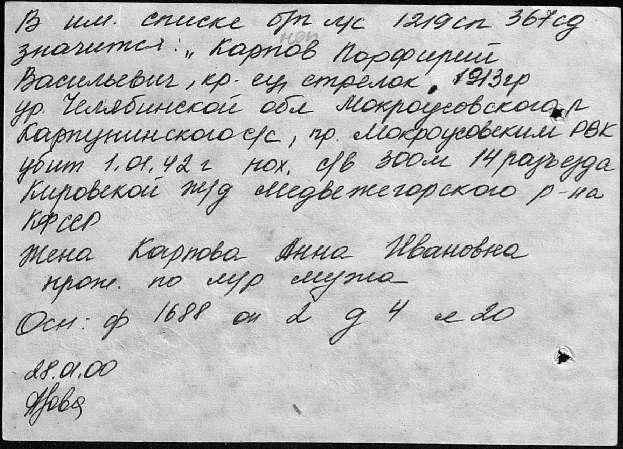 В им. списке б/п л/с 1219сп 367сд
значится: „Карпов Порфирий
Васильевич, кр-ец стрелок, 1913гр
ур. Челябинской обл Мокроусовского р
Карпунинского с/с, пр. Мокроусовским РВК
убит 1.01.42 г пох. с/в 300м 14 разъезда
Кировской ж/д Медвежегорского р-на
КФССР
Жена Карпова Анна Ивановна
прож. по м/р мужа
Осн: ф 1688 оп 2 д 4 л 20
28.01.00